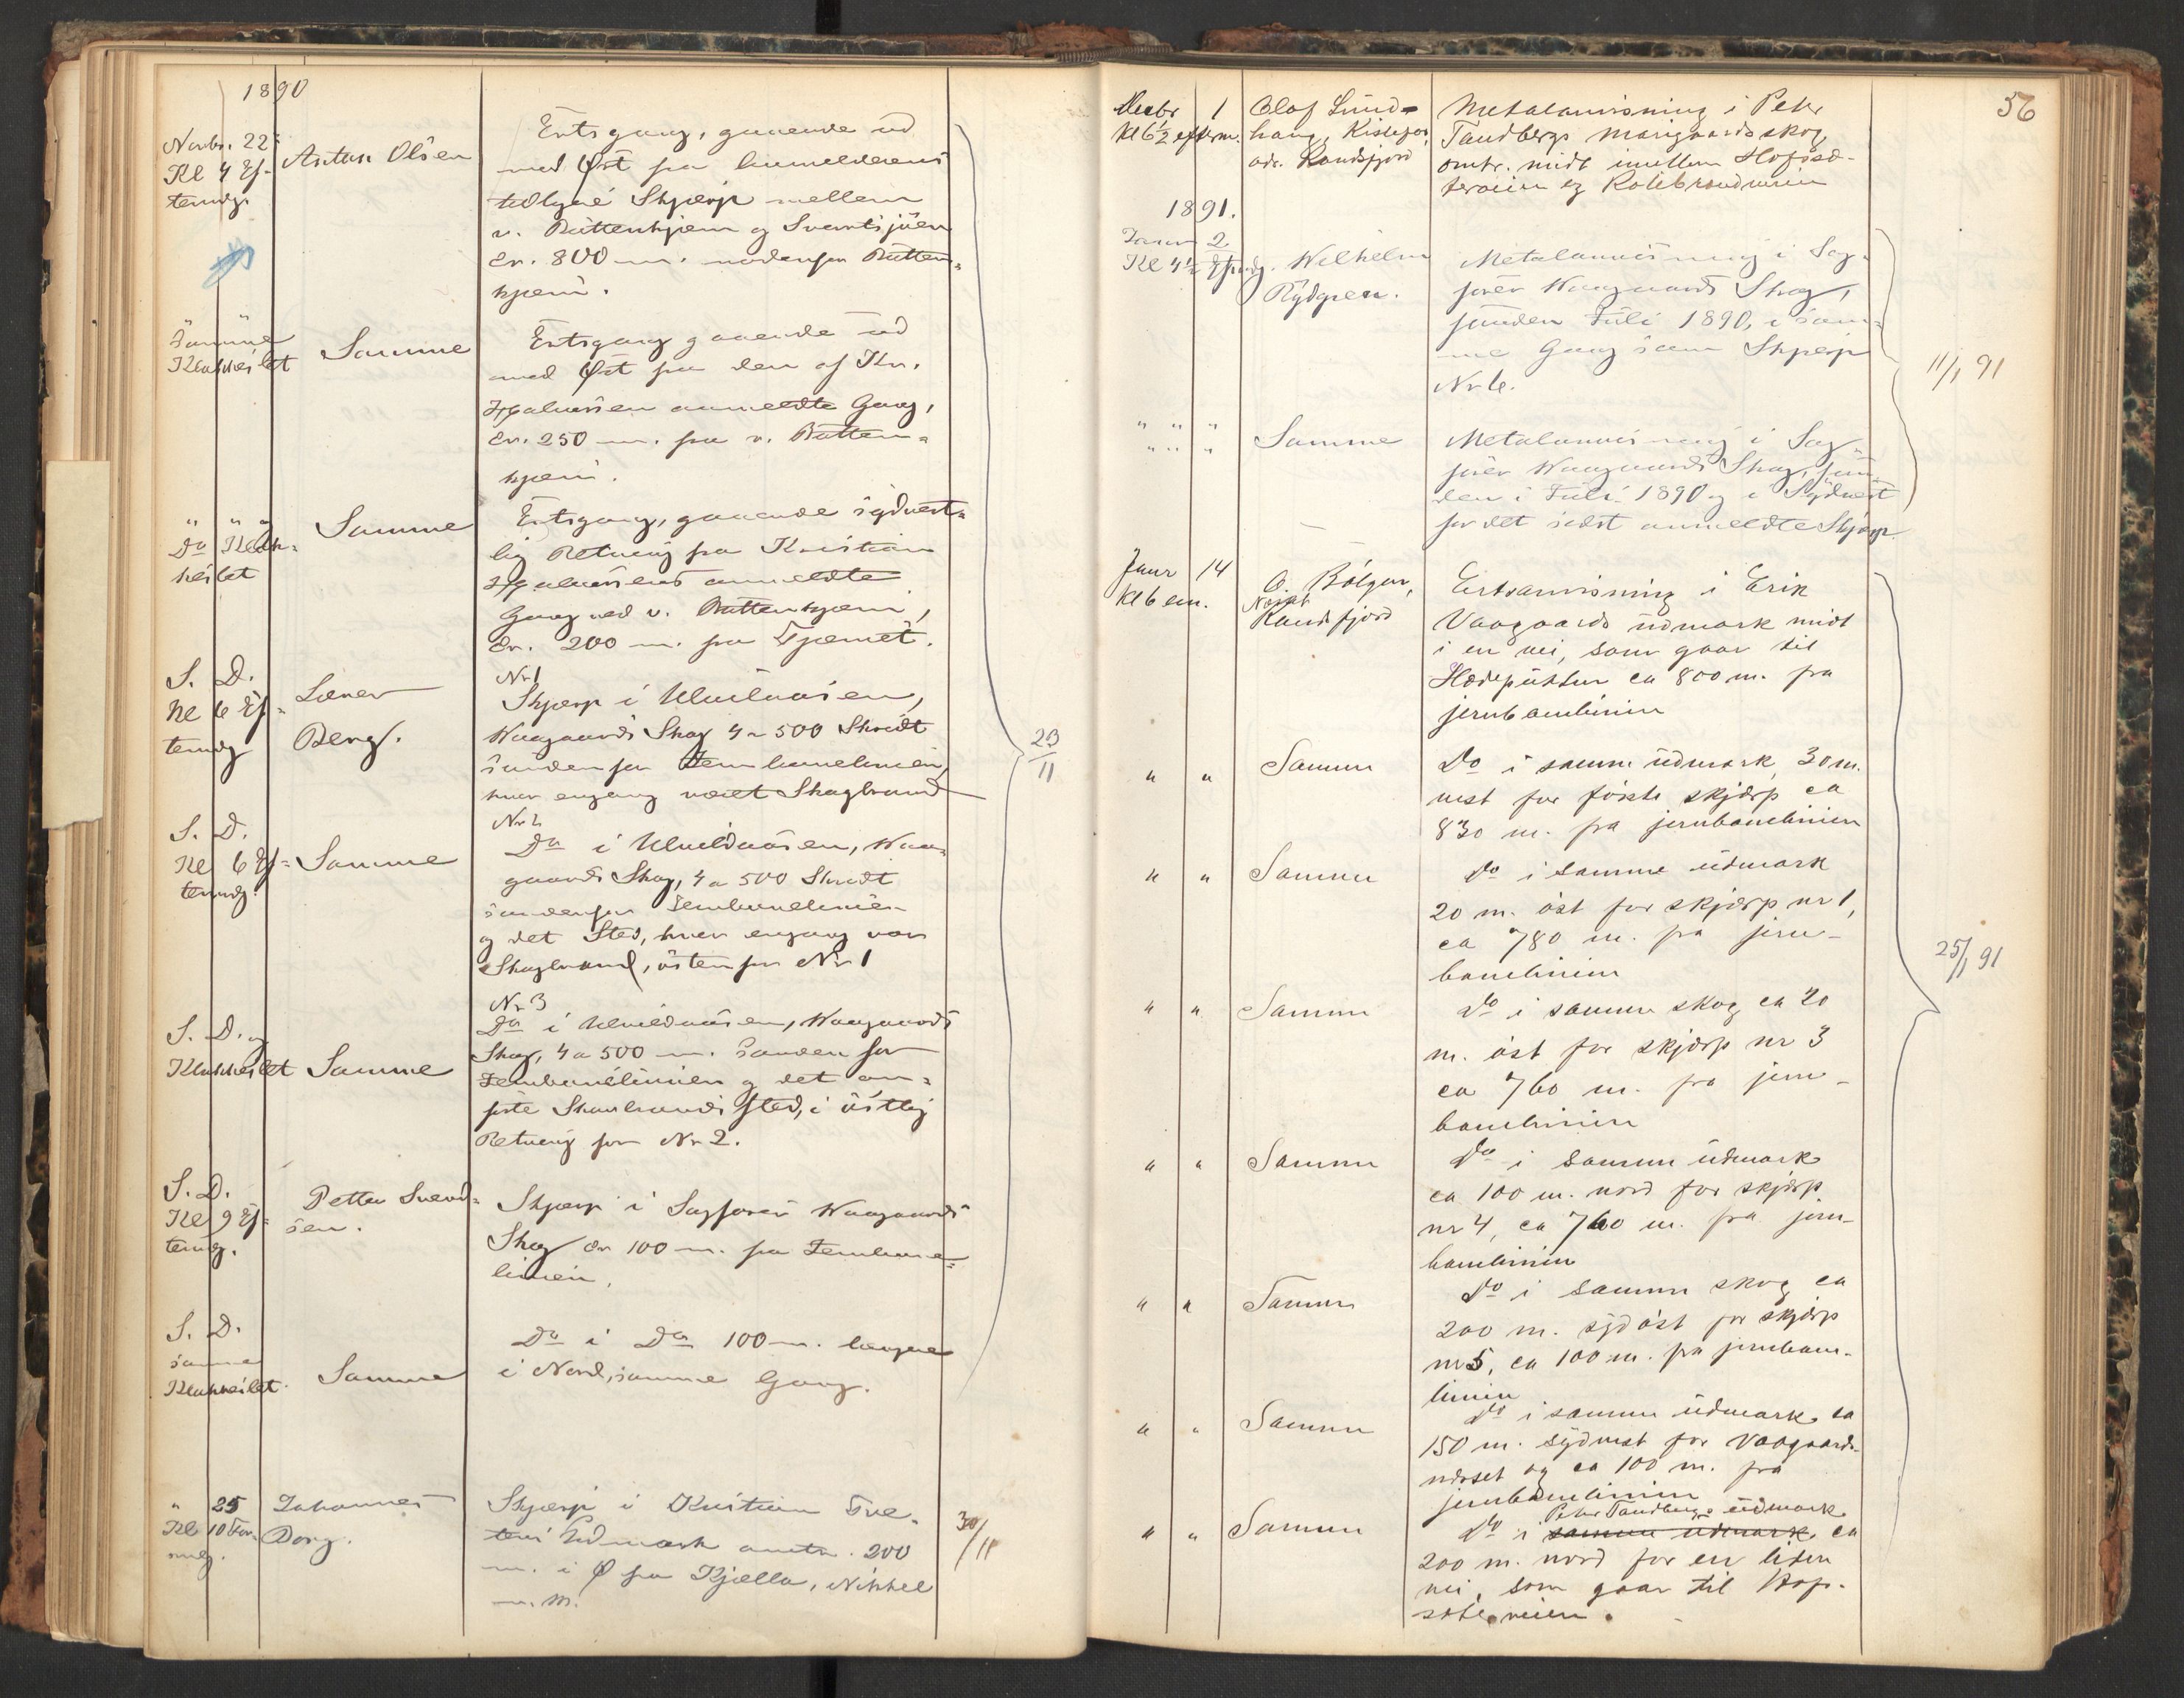 1890
Novbr. 22
Kl 4 Ef-
termdg.
Anton Olsen
Ertsgang, gaaende ud
med Øst fra Anmelderens
tidligere Skjærp mellem
v. Buttenkjern og Svartsjöen
Cr. 800 m. nordenfor Butten=
kjern.
Samme
Klokkeslet
Samme
Ertsgang gaaende ud
med Øst fra den af Kr.
Hjalmersen anmeldte Gang,
Cr. 250 m. fra v. Butten=
kjern.
" " og
Do Klok=
keslet
Samme
Ertsgang, gaaende sydvest=
lig Retning fra Kristian
anmeldte
Gang ved v. Buttenkjern,
Cr. 200 m. fra Tjernet.
S. D.
Kl 6 Ef=
termdg
Berg.
Nr 1
Skjærp i
Waagaards Skog 4 a 500 Skridt
søndenfor Jernbanelinien,
hvor engang været Skogbrand
S. D.
Kl 6 Ef=
termdg.
Samme
Nr 2
Do i Waa=
gaards Skog, 4 a 500 Skridt
søndenfor Jernbanelinien
og det Sted, hvor engang var
Skogbrand, östenfor Nr 1
S. D. og
Klokkeslet
Samme
Nr 3
Do i Waagaards
Skog, 4 a 500 m. sønden for
Jernbanelinien og det an=
førte Skovbrands sted, i östlig
Retning for Nr 2.
S. D.
Kl 9 Ef=
termdg.
Petter Svend=
sen.
Skjærp i Sagfører Waagaards
Skog Cr 100 m. fra Jernbane=
linien.
S. D.
samme
Klokkeslet.
Samme
Do i Do 100 m. længere
i Nord, samme Gang.
23
11
" 25
Kl 10 For-
mdg.
Johannes
Borg.
Skjærp i Kristian Tve-
tens Udmark omtr. 200
m. i Ø fra Kjella, Nikkel
m. m.
30/11
56
Decbr 1
Kl 6½ efterm.
Olof Lund-
haug,
adr. Randsfjord
Metalanvisning i Peter
Tandbergs skog,
omtr. midt imellem Hofssæ-
terveien og
1891.
Januar 2
Kl 4½ Eftmdg.
Wilhelm
Rydgren.
Metalanvisning i Sag-
fører Waagaards Skog,
funden Juli 1890, i sam=
me Gang som Skjærp
Nr 6.
" " "
" " "
Samme
Metalanvisning i Sag-
fører Waagaards Skog, fun
den i Juli 1890 og i Sydvest
for det sidst anmeldte Skjærp.
11/1 91
Janr 14
Kl 6 em.
O. Bölgen,
Randsfjord
Ertsanvisning i Erik
Vaagaards udmark midt
i en vei, som gaar til
ca 800 m. fra
jernbanelinien
" "
Samme
Do i samme udmark, 30 m.
vest for förste skjærp ca
830 m. fra jernbanelinien
" "
Samme
Do i samme udmark
20 m. öst for skjærp nr 1,
ca 780 m. fra jern-
banelinien
" "
Samme
Do i samme skog ca 20
m. öst for skjærp nr 3
ca 760 m. fra jern-
banelinien
" "
Samme
Do i samme udmark
ca 100 m. nord for skjærp
nr 4, ca 760 m. fra jern-
banelinien
" "
Samme
Do i samme skog ca
200 m. sydöst for skjærp
nr 5, ca 100 m. fra jernbane-
linien
" "
Samme
Do i samme udmark ca
150 m. sydvest for Vaagaards-
og ca 100 m. fra
jernbanelinien
" "
Samme
Peter Tandbergs udmark
Do i samme udmark, ca
200 m. nord for en liden
vei, som gaar til Hof-
sæterveien.
25/1 91